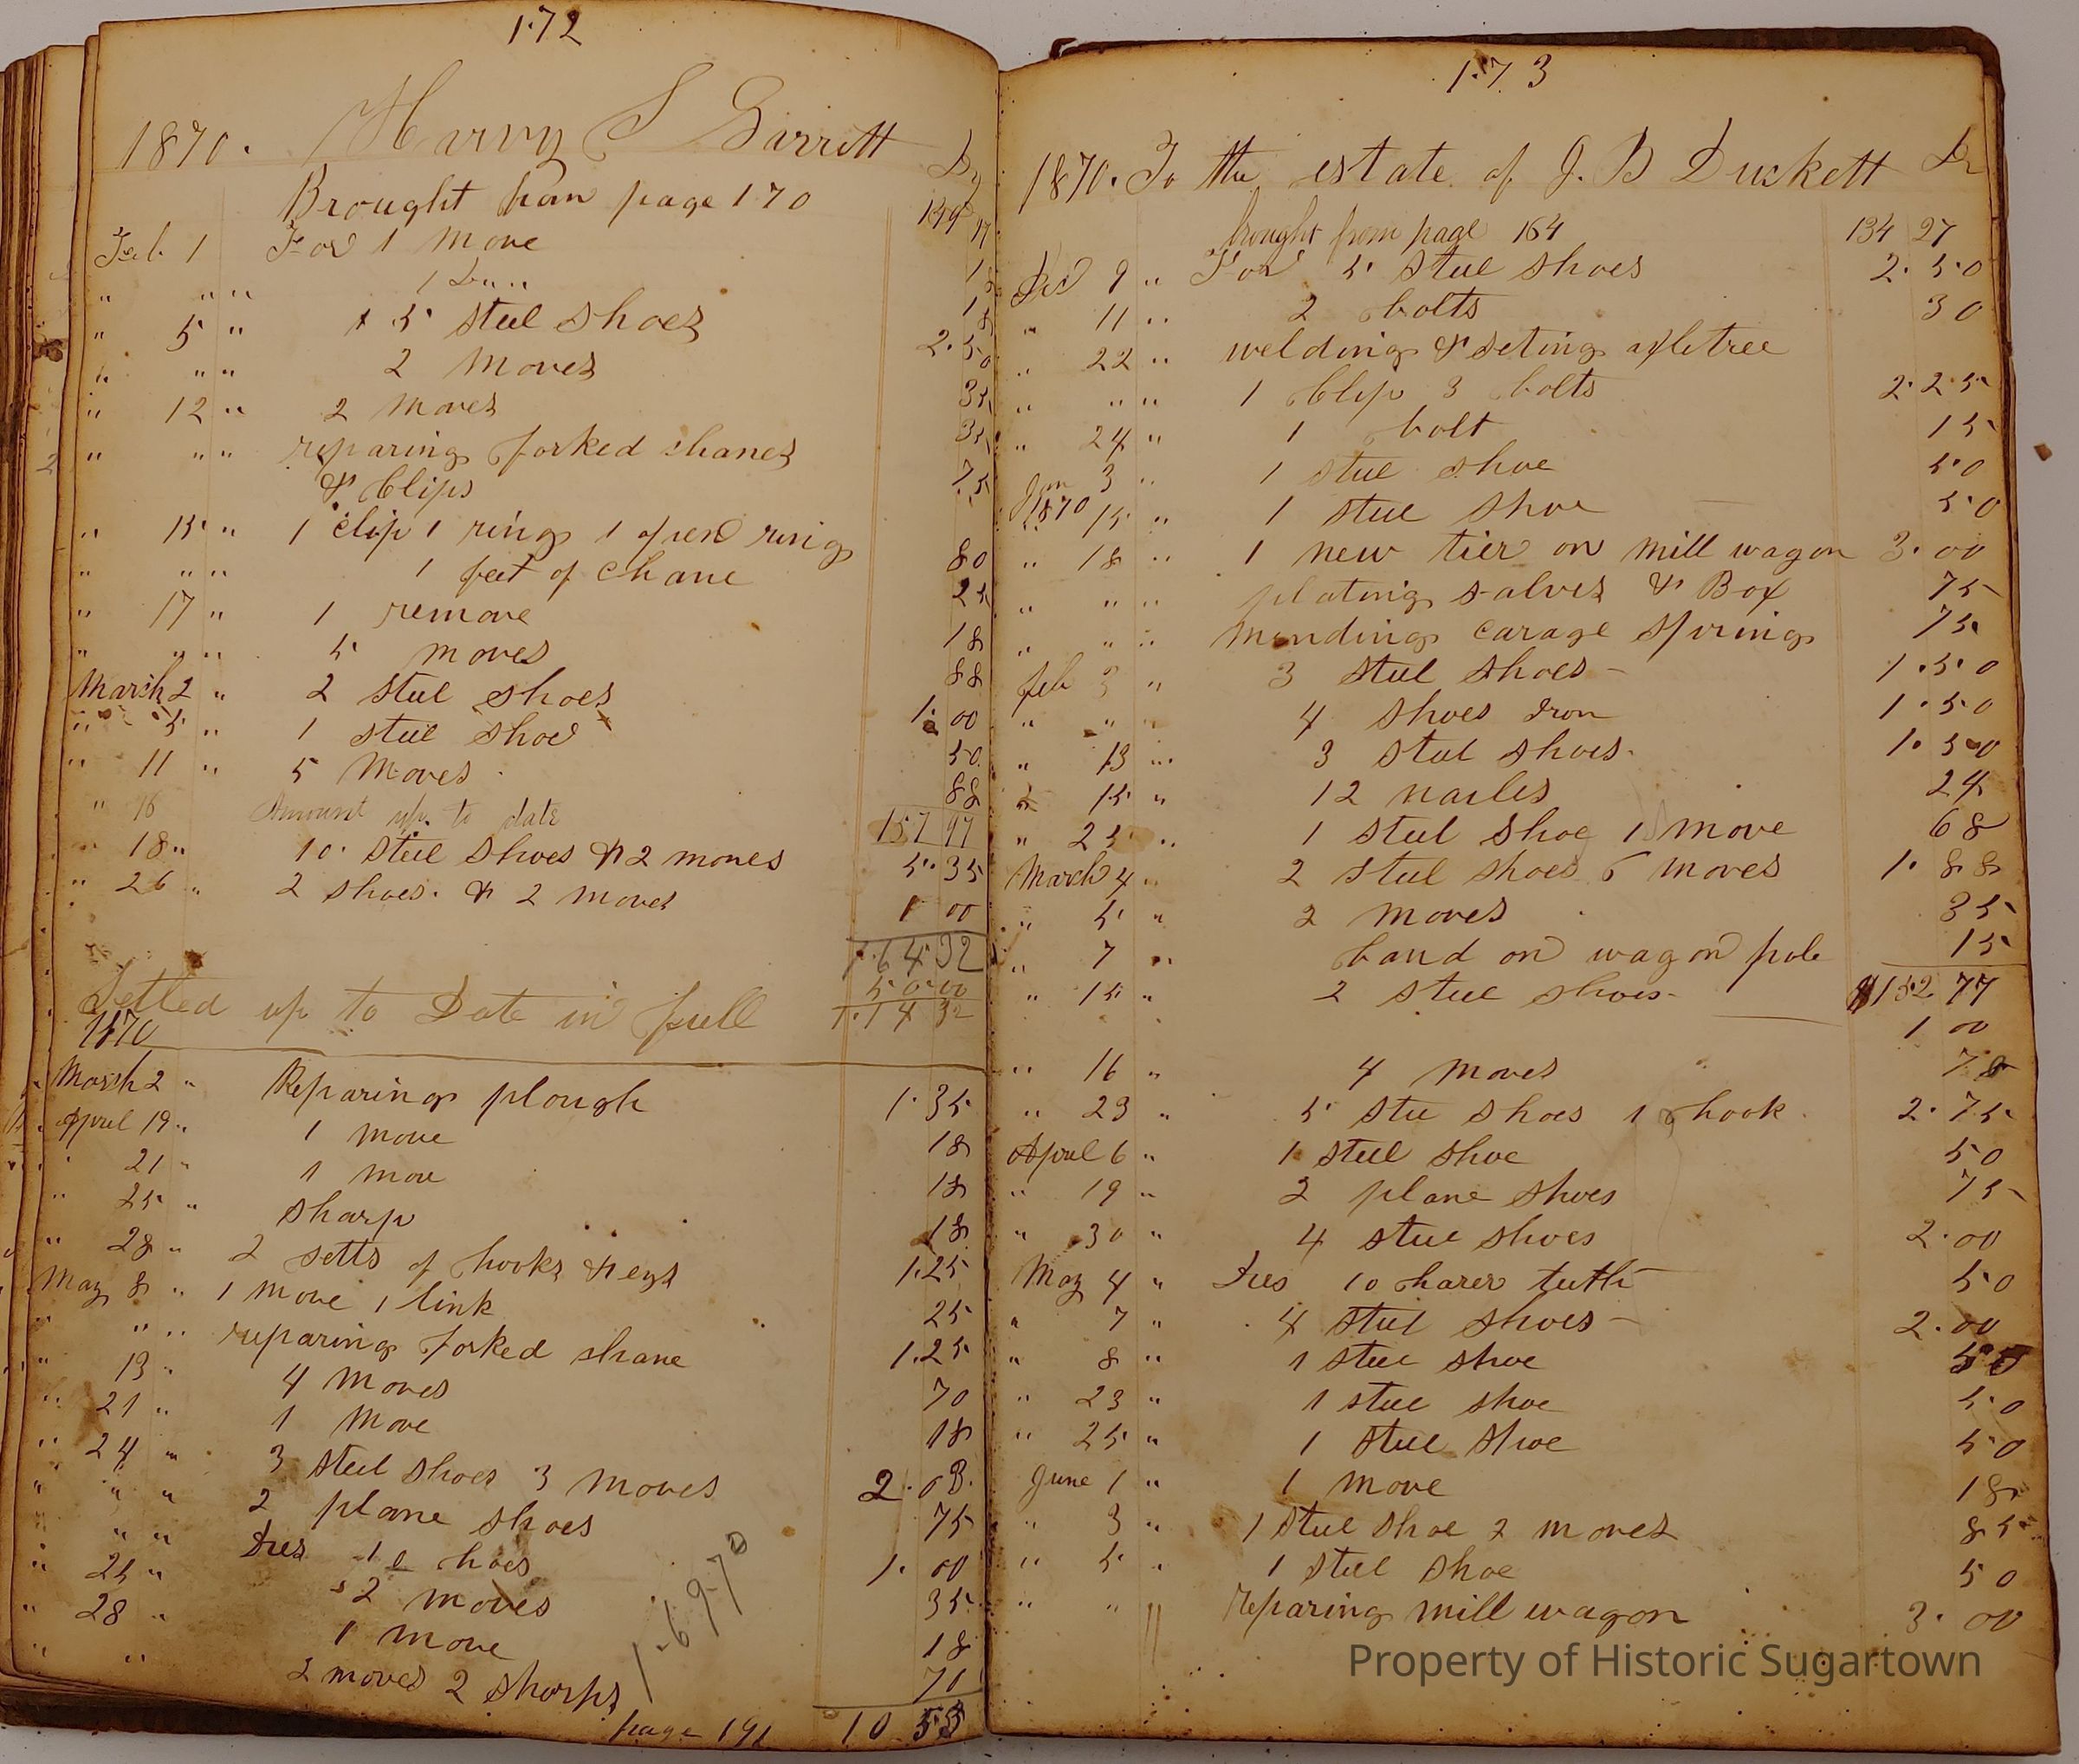 172
1870. Harvy S Garrett Dr
Brought from page 170 149 97
Feb 1 For 1 Move 18
" " " 1 Do " " 18
" 5 " 5 steel shoes 2.50
" " " 2 Moves 35
" 12 " 2 Moves 35
" " " reparing forked shanes
& Clips 75
" 15 " 1 Clip 1 ring 1 open ring 80
" " " 1 feet of Chane 25
" 17 " 1 remove 18
" " " 5 moves 88
March 2 " 2 steel shoes 1.00
" 5 " 1 steel shoe 50
" 11 " 5 Moves 88
" 16 Amount up to date 157 97
" 18 " 10 Steel Shoes & 2 moves 5.35
" 26 " 2 shoes. & 2 moves 1 00
164 32
50.00
114 32
Setled up to Date in full
1870
March 2 " Reparing plough 1.35
April 19 " 1 move 18
" 21 " 1 move 18
" 25 " sharp 18
" 28 " 2 setts of hooks & eys 1.25
May 8 " 1 move 1 link 25
" " " reparing forked shane 1.25
" 13 " 4 Moves 70
" 21 " 1 Move 18
" 24 " 3 steel shoes 3 moves 2.03
" " " 2 plane shoes 75
" " " 1.00
" 25 " 2 moves 35
" 28 " 1 move 18
" " 2 moves 2 sharps 70
1.69.70
page 191 10 53
173
1870. To the estate of J. B Duckett Dr
brought from page 164 134 27
Dec 9 " For 5 steel shoes 2.50
" 11 " 2 bolts 30
" 22 " welding & seting axletree
" " " 1 Clip 3 bolts 2.25
" 24 " 1 bolt 15
Jan 3 " 1 steel shoe 50
1870 15 " 1 steel shoe 50
" 18 " 1 new tier on mill wagon 3.00
" " " plating salves & Box 75
" " " mending Carage spring 75
feb 3 " 3 steel shoes 1.50
" " " 4 shoes Iron 1.50
" 13 " 3 steel shoes. 1.50
" 15 " 12 nailes 24
" 25 " 1 steel shoe 1 move 68
March 4 " 2 steel shoes 6 moves 1.88
" 5 " 2 moves 35
" 7 " band on wagon pole 15
" 15 " 2 steel shoes $152 77
1 00
" 16 " 4 moves 78
" 23 " 5 stee shoes 1 hook 2.75
April 6 " 1 steel shoe 50
" 19 " 2 plane shoes 75
" 30 " 4 steel shoes 2.00
May 4 " 10 harer teeth 50
" 7 " 4 steel shoes 2.00
" 8 " 1 steel shoe 50
" 23 " 1 steel shoe 50
" 25 " 1 steel shoe 50
June 1 " 1 move 18
" 3 " 1 steel shoe 2 moves 85
" 5 " 1 steel shoe 50
" " " Reparing mill wagon 3.00
Property of Historic Sugartown